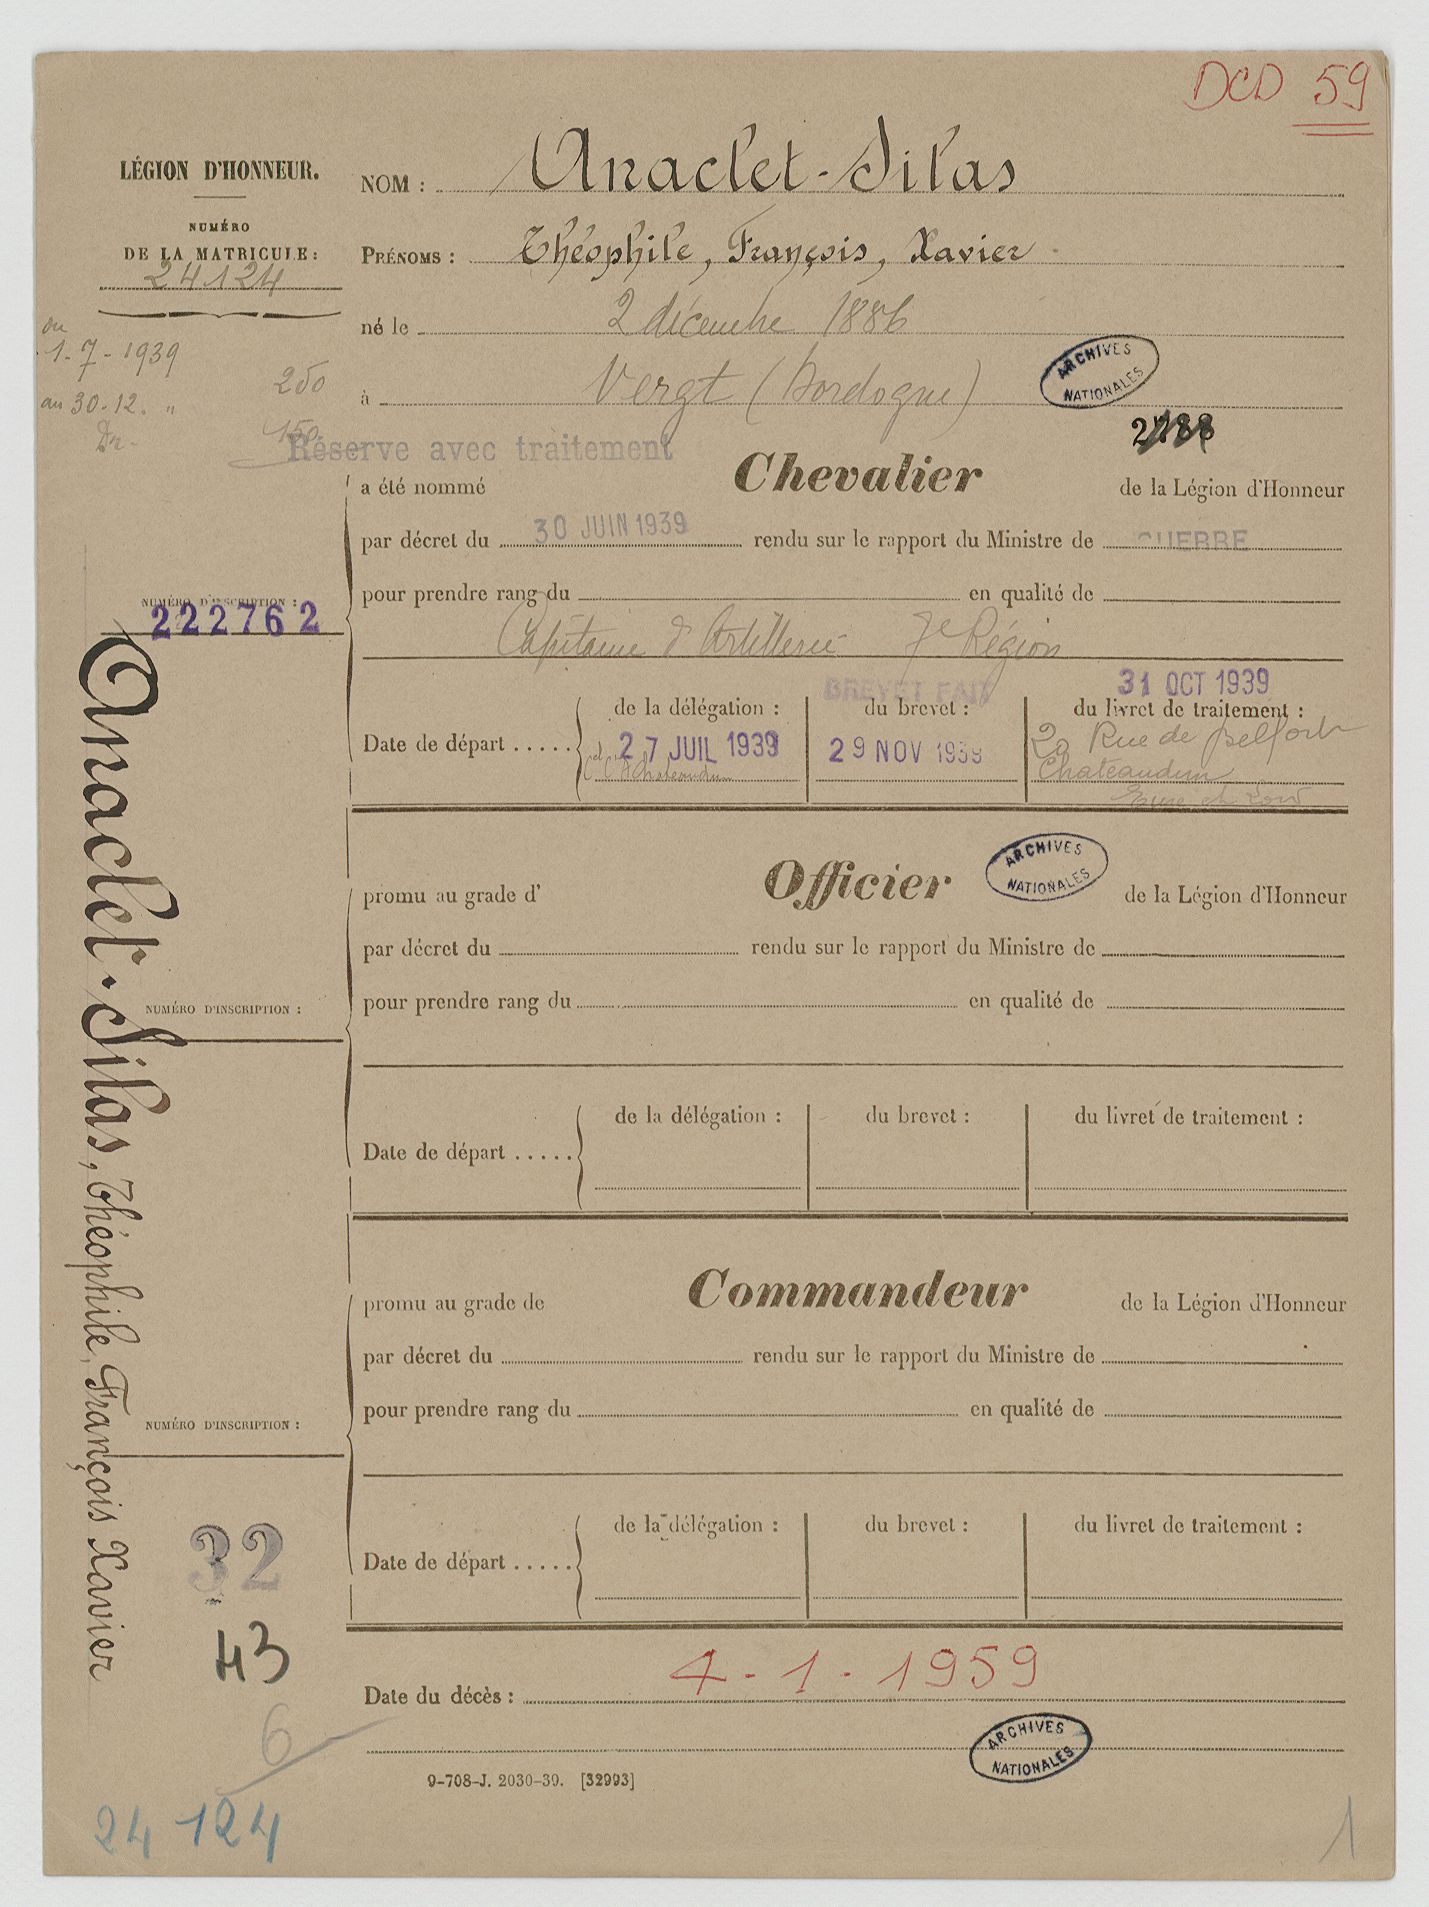 DCD 59
LÉGION D'HONNEUR.
NOM : Anaclet-Silas
NUMÉRO
DE LA MATRICULE :
24124
PRÉNOMS : Théophile, François, Xavier
né le 2 décembre 1886
du
1-7-1939
250
au 30-12. "
150
à Vergt (Dordogne)
ARCHIVES
NATIONALES
Réserve avec traitement
a été nommé Chevalier de la Légion d'Honneur
par décret du 30 JUIN 1939 rendu sur le rapport du Ministre de GUERRE
pour prendre rang du en qualité de
NUMÉRO D'INSCRIPTION :
222762
Capitaine d'Artillerie 7e Région
BREVET FAIT
31 OCT 1939
Date de départ ..... de la délégation : du brevet : du livret de traitement :
27 JUIL 1939 29 NOV 1939
20 Rue de Belfort
Chateaudun
Eure et Loir
ARCHIVES
NATIONALES
promu au grade d' Officier de la Légion d'Honneur
par décret du rendu sur le rapport du Ministre de
pour prendre rang du en qualité de
NUMÉRO D'INSCRIPTION :
Date de départ ..... de la délégation : du brevet : du livret de traitement :
promu au grade de Commandeur de la Légion d'Honneur
par décret du rendu sur le rapport du Ministre de
pour prendre rang du en qualité de
NUMÉRO D'INSCRIPTION :
Date de départ ..... de la délégation : du brevet : du livret de traitement :
Anaclet-Silas, Théophile, François Xavier
32
43
6
Date du décès : 4-1-1959
ARCHIVES
NATIONALES
9-708-J. 2030-39. [32993]
24 124
1